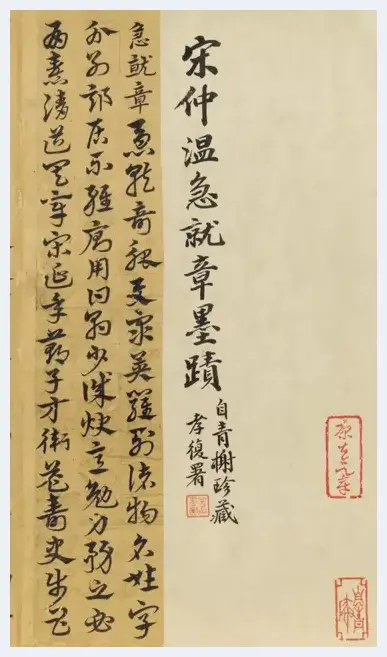 宋仲温急就章墨蹟
自青榭珍藏
孝復署
急就章急就奇觚與衆異羅列諸物名姓字
分别部居不雜廁用日約少誠快意勉力務之必
有憙請道其章宋延年鄭子方衛益壽史步昌